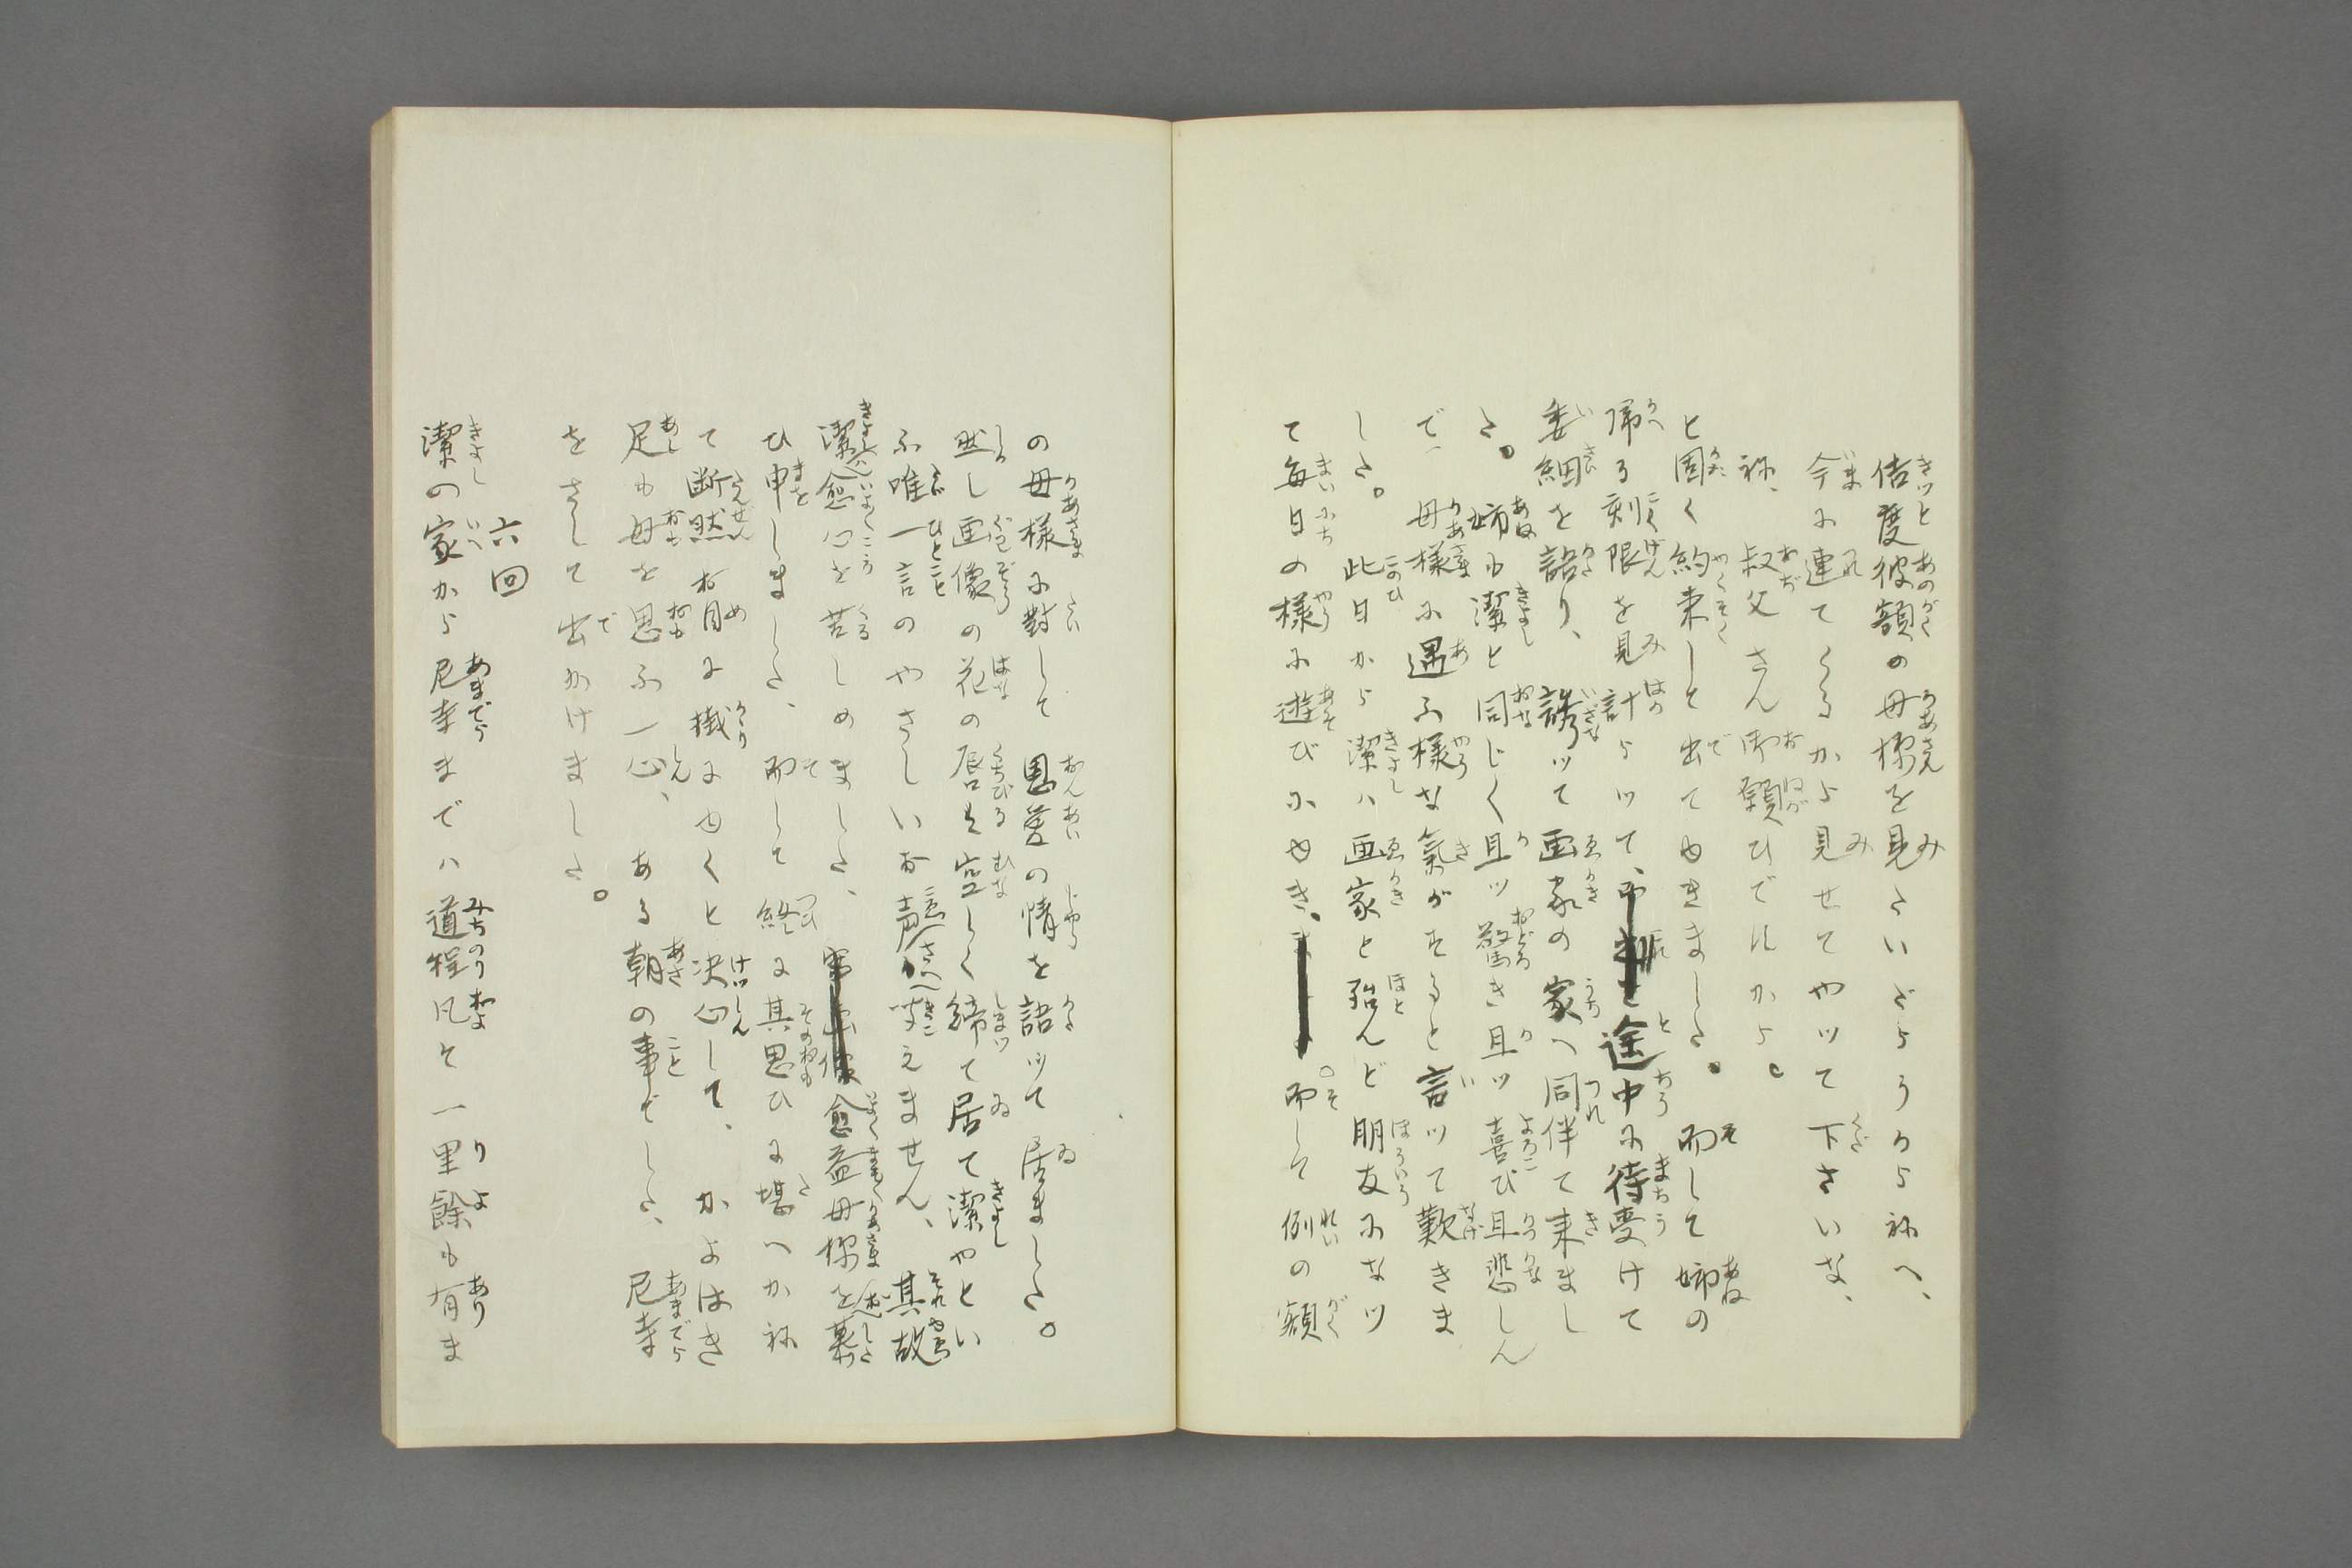 佶度彼額の母様を見たいだらうから祢へ、
今に連てくるから見せてやッて下さいな、
祢、叔父さん御願ひでれから。
と固く約束しと出てゆきました。而して姉の
帰る刻限を見計らッて、途中に待受けて
委細を語り、誘ッて画家の家へ同伴て来まし
た。姉も潔と同じく且ッ驚き且ッ喜び且悲しん
で、母様に遇ふ様な氣がすると言ッて歎きま
した。此日から潔ハ画家と殆んど朋友になツ
て毎日の様に遊びにゆき、而して例の額
の母様に對して恩愛の情を語ッて居ました。
然し画像の花の唇は空しく締て居て潔やとい
ふ唯一言のやさしいお声さへ聞えません、其故
潔ハ愈心を苦しめました、愈益母様を慕
ひ申しました、而して終に其思ひに堪へか祢
て断然お目に掛にゆくと決心して、かよはき
足も母を思ふ一心、ある朝の事でした、尼寺
をさして出かけました。
六回
潔の家から尼寺まででハ道程凡そ一里餘も有ま